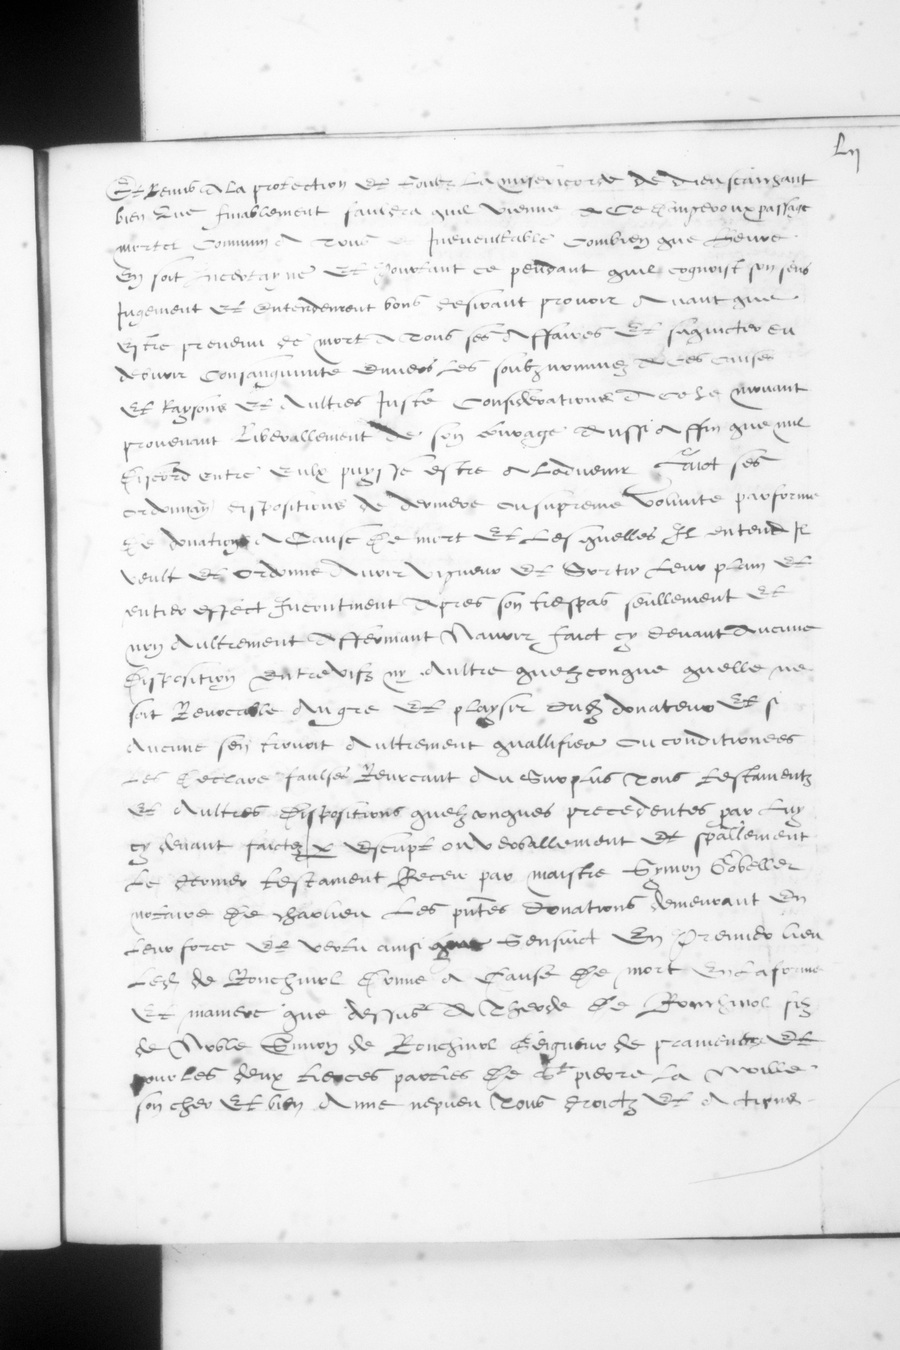 Lij
Et Remis a la protection et toute la misericorde de dieu scaichant
bien que finablement fauldra quil vienne a ce dangereux passage
mortel commun a tous et inevitable combien que lheure
En soit incertayne Et pourtant ce pendant quil cognoist son sens
Jugement et entendement bons desirant provoir avant que
Estre prevenu de mort a tous ses affaires Et saquicter du
devoir consanguinité envers les soubz nommez a ces causes
Et Raysons Et aultres Juste considerations a ce le mouvant
provenant liberallement de son couraige aussi affin que nul
discord entre eulx puysse estre a ladvenir faict ses
ordonnan disposition de derniere ou supreme volunte par forme
de donation a cause de mort Et Lesquelles Il entend Il
veult Et ordonne avoir vigueur Et Sortir leur plain Et
entier effect Incontinent apres son trespas seullement Et
non aultrement affermant Navoir faict cy devant aucune
disposition entre vifz ny aultre quelzconque quelle ne
soit Revocable au gre Et playsir dudz donateur Et si
aucune sen trovoit aultrement quallifiee ou conditionees
les declare faulses Revocant au surplus tous testamentz
Et aultres dispositions quelzconques precedentes par luy
cy devant faictes x Escript ou verballement Et spallement
Le dernier testament Receu par maistre Symon Gobellet
notaire de charlieu Les pntes donations demeurant En
leur force Et vertu ainsi que Sensuict En Premier lieu
Led de Ronchivol donne a cause de mort En la forme
Et maniere que dessus a Theode de Ronchivol filz
de Noble Simon de Ronchivol Seigneur de pramenoux Et
pour les deux tierces parties de pierre la
son cher Et bien aime nepveu tous droictz Et actions